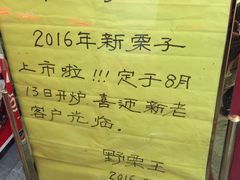 2016年新栗子
上市啦!!!定于8月
13日开炉喜迎新老
客户光临.
野栗王
2016